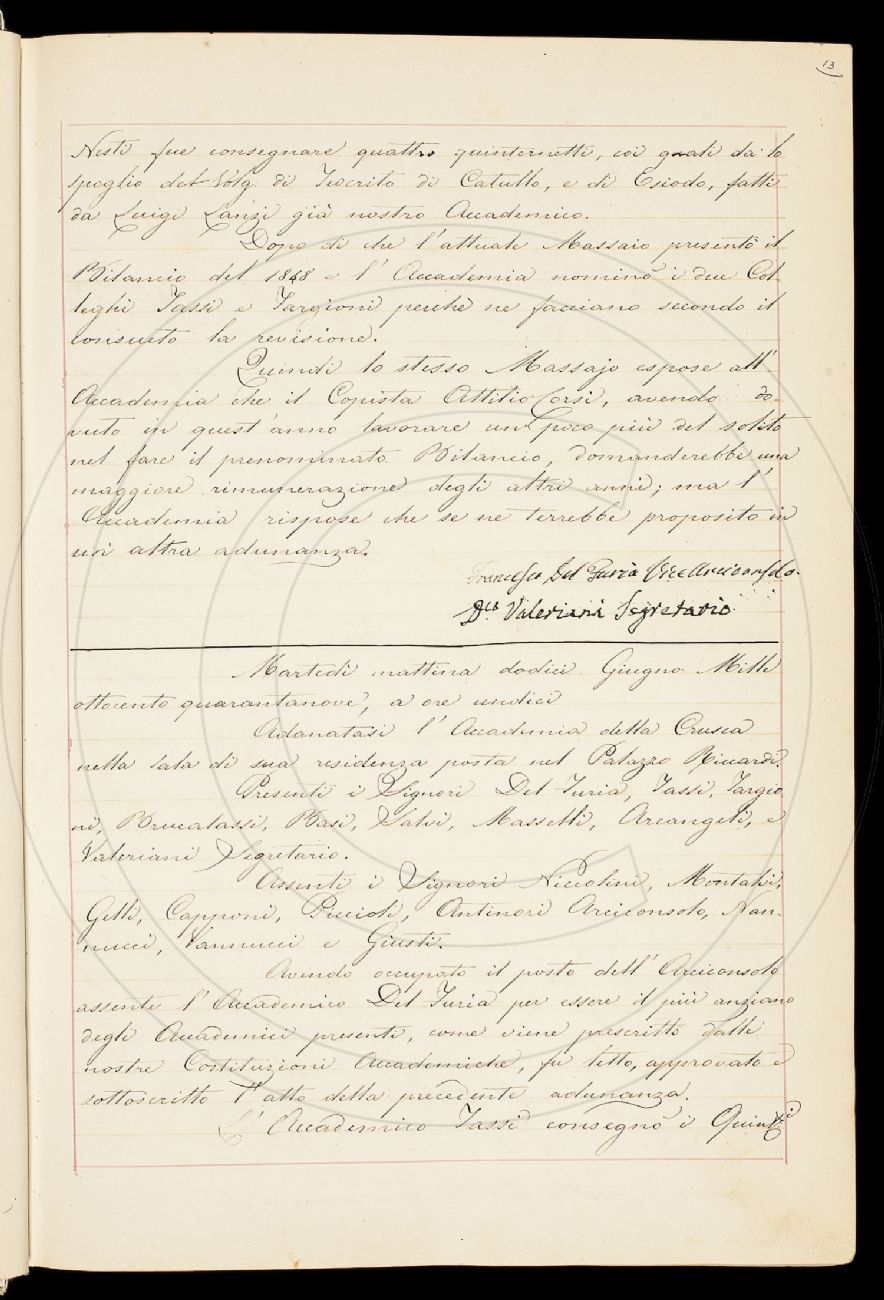 13
Nesti fece consegnare quattro quinternetti, coi quali dà lo
spoglio del Volg. di Teocrito di Catullo, e di Esiodo, fatti
da Luigi Lanzi già nostro Accademico.
Dopo di che l'attuale Massaio presentò il
Bilancio del 1848 e l'Accademia nominò i due Col-
leghi Tassi e Targioni perchè ne facciano secondo il
consueto la revisione.
Quindi lo stesso Massajo espose all'
Accademia che il Copista Attilio Corsi, avendo do-
vuto in quest'anno lavorare un poco più del solito
nel fare il prenominato Bilancio, domanderebbe una
maggiore rimunerazione degli altri anni; ma l'
Accademia rispose che se ne terrebbe proposito in
un altra adunanza.
Francesco Del Furia Vice Arciconsolo.
Dco Valeriani Segretario
Martedì mattina dodici Giugno Mille
ottocento quarantanove, a ore undici
Adunatasi l'Accademia della Crusca
nella sala di sua residenza posta nel Palazzo Riccardi.
Presenti i Signori Del Furia, Tassi, Targio-
ni, Brucalassi, Basi, Salvi, Masselli, Arcangeli, e
Valeriani Segretario.
Assenti i Signori Niccolini, Montalvi,
Gelli, Capponi, Piccioli, Antinori Arciconsolo, Nan-
nucci, Vannucci e Giusti.
Avendo occupato il posto dell'Arciconsolo
assente l'Accademico Del Furia per essere il più anziano
degli Accademici presenti, come viene prescritto dalle
nostre Costituzioni Accademiche, fù letto, approvato e
sottoscritto l'atto della precedente adunanza.
L'Accademico Tassi consegnò i Quinti